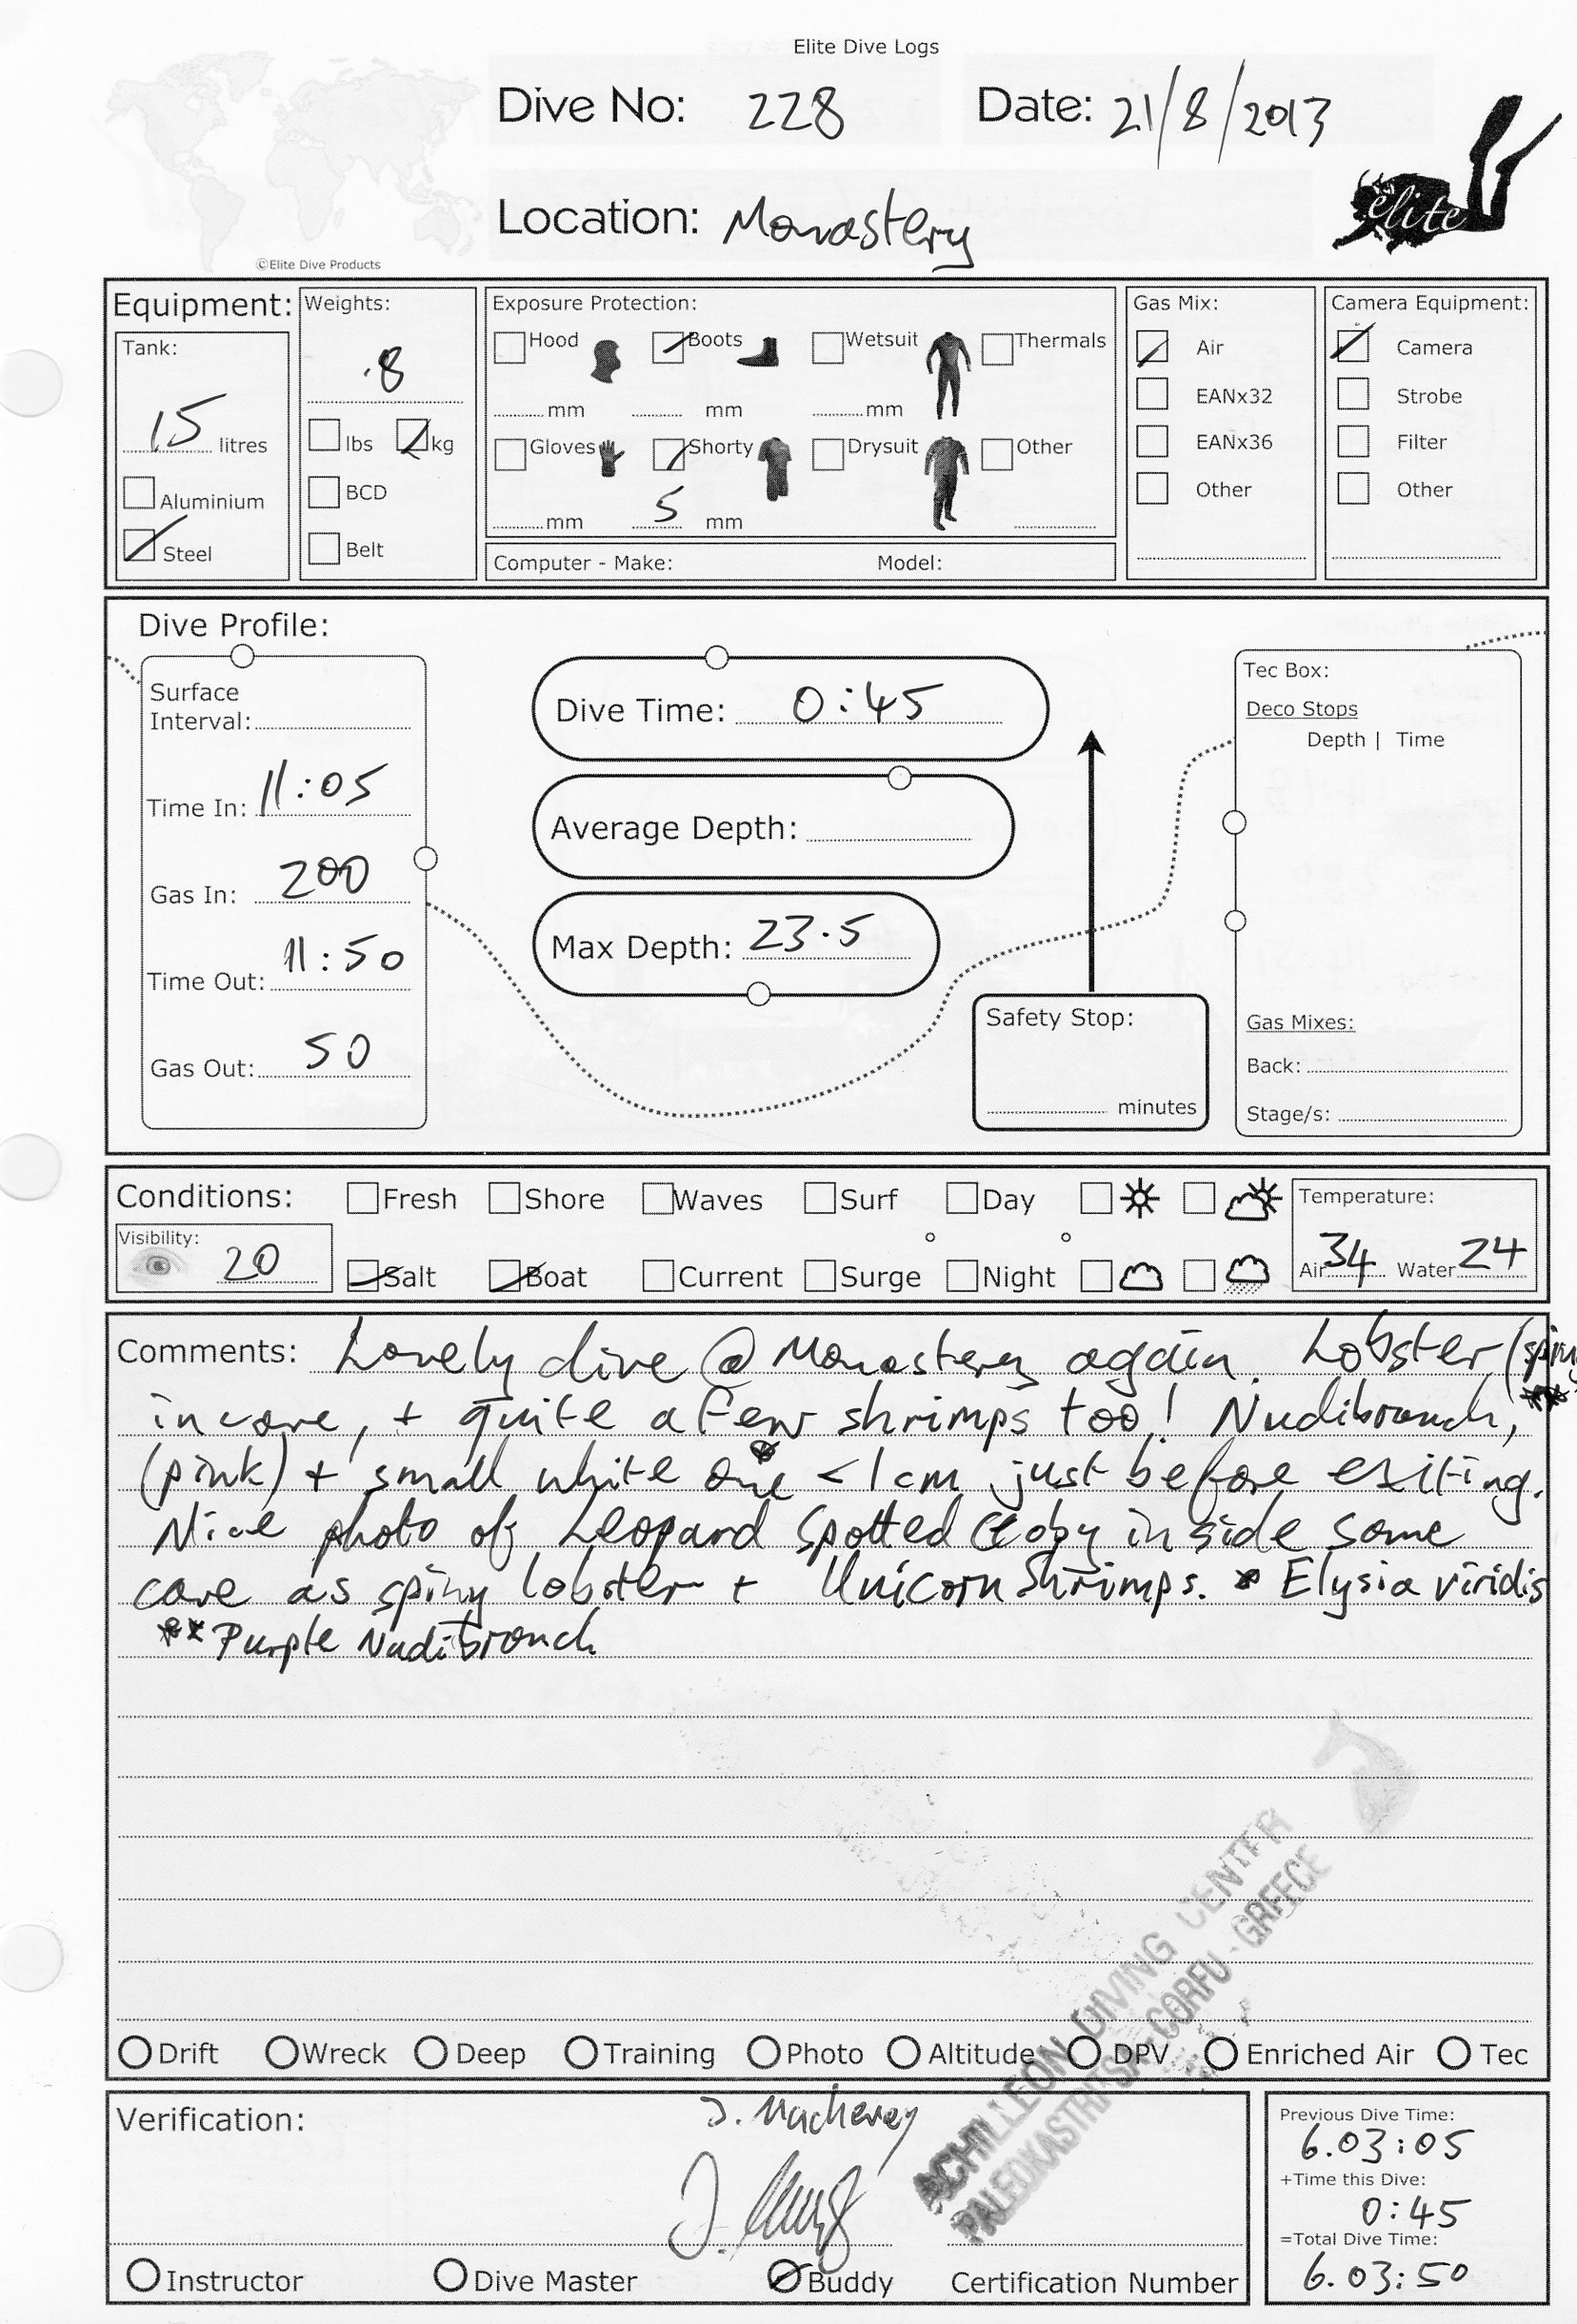 Elite Dive Logs
Dive No: 228 Date: 21/8/2013
Location: Monastery
elite
©Elite Dive Products
Equipment: Weights: Exposure Protection: Gas Mix: Camera Equipment:
Tank: .8 Hood Boots Wetsuit Thermals Air Camera
15 litres mm mm mm EANx32 Strobe
lbs kg Gloves Shorty Drysuit Other EANx36 Filter
Aluminium BCD mm 5 mm Other Other
Steel Belt Computer - Make: Model:
Dive Profile:
Surface
Interval:
Time In: 11:05
Gas In: 200
Time Out: 11:50
Gas Out: 50
Dive Time: 0:45
Average Depth:
Max Depth: 23.5
Safety Stop:
minutes
Tec Box:
Deco Stops
Depth | Time
Gas Mixes:
Back:
Stage/s:
Conditions: Fresh Shore Waves Surf Day Temperature:
Visibility: 20 Salt Boat Current Surge Night Air 34 Water 24
Comments: Lovely dive @ Monastery again. Lobster (spin
in cave, + quite a few shrimps too! Nudibranch, **
(pink) + small white one * <1cm just before exiting.
Nice photo of Leopard Spotted Goby in side same
cave as spiny lobster + Unicorn Shrimps. * Elysia viridis
** Purple Nudibranch
Drift Wreck Deep Training Photo Altitude DPV Enriched Air Tec
ACHILLEON DIVING CENTER
PALEOKASTRITSA - CORFU - GREECE
Verification:
Instructor Dive Master Buddy Certification Number
Previous Dive Time:
6.03:05
+Time this Dive:
0:45
=Total Dive Time:
6.03:50